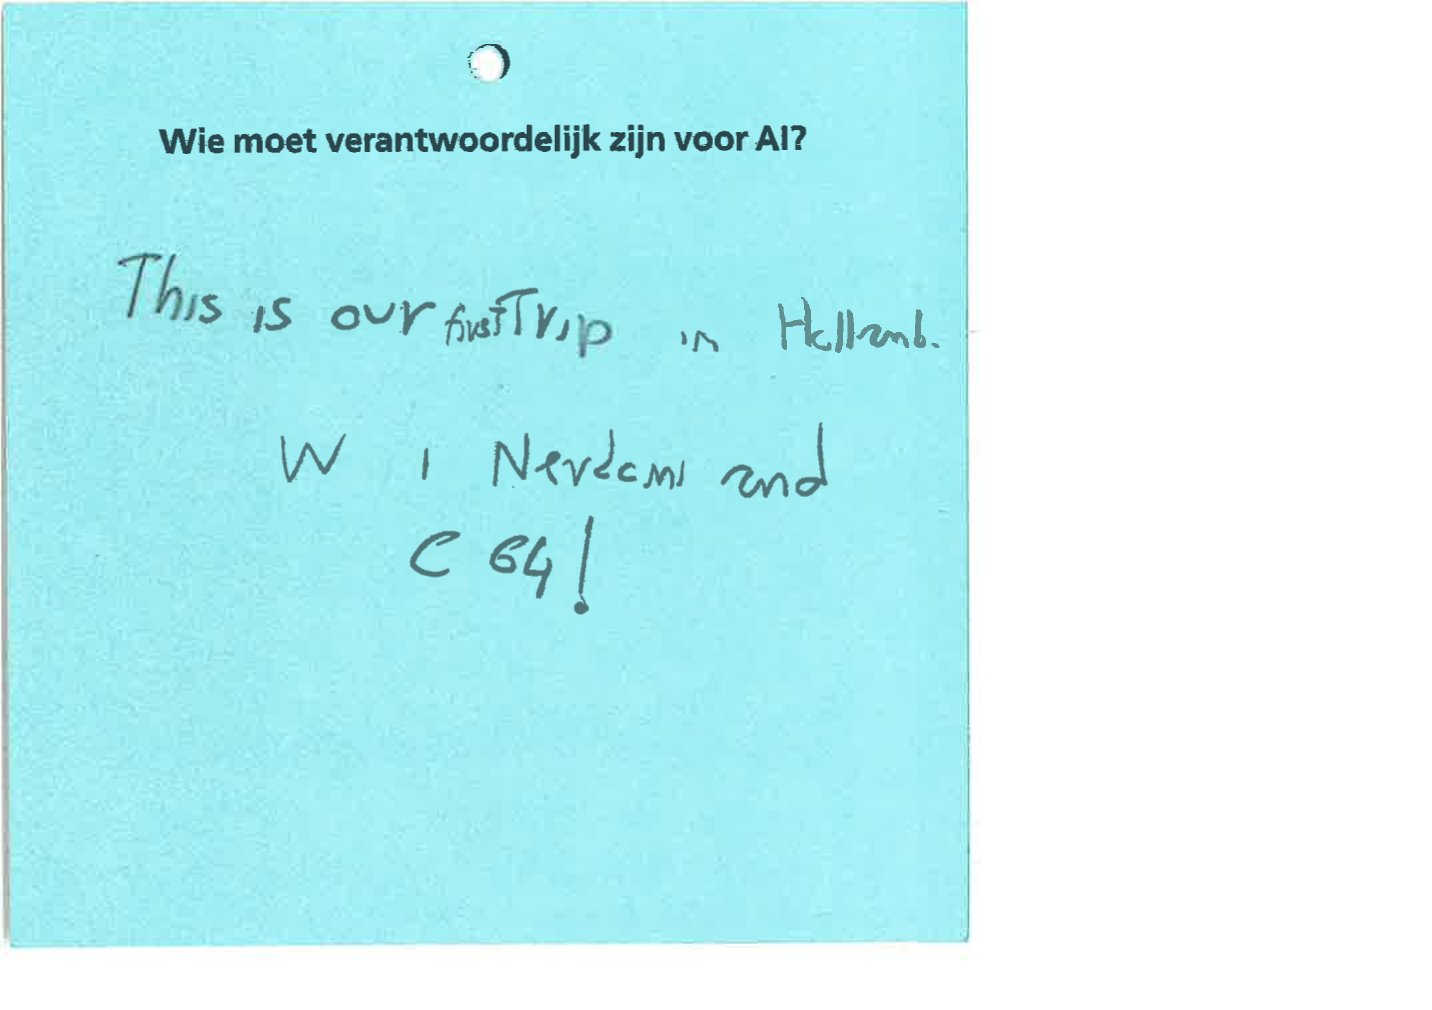 Wie moet verantwoordelijk zijn voor AI?
This is our first Trip in Holland.
W i Nerdcmi and
C 64!